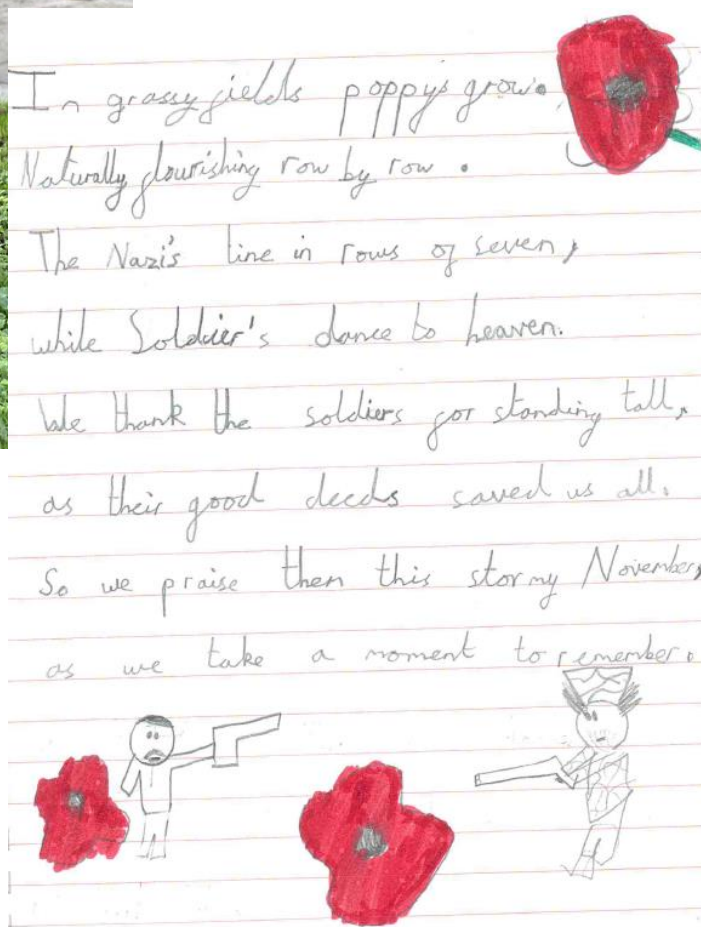 In grassy fields poppy's grow.
Naturally flourishing row by row.
The Nazi's line in rows of seven,
while Soldier's dance to heaven.
We thank the soldiers for standing tall,
as their good deeds saved us all.
So we praise them this stormy November,
as we take a moment to remember.